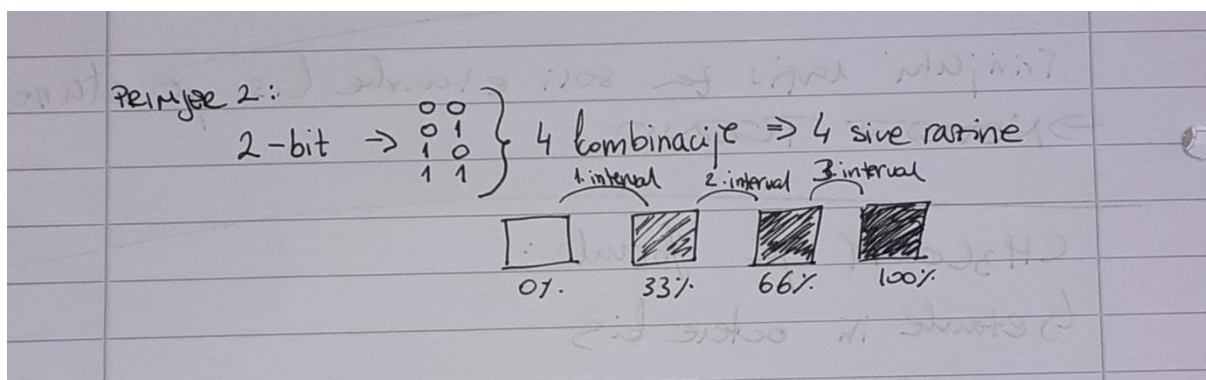 PRIMJER 2:
0 0
2-bit → 0 1 } 4 kombinacije ⇒ 4 sive razine
1 0
1 1
1. interval 2. interval 3. interval
0%. 33% 66%. 100%